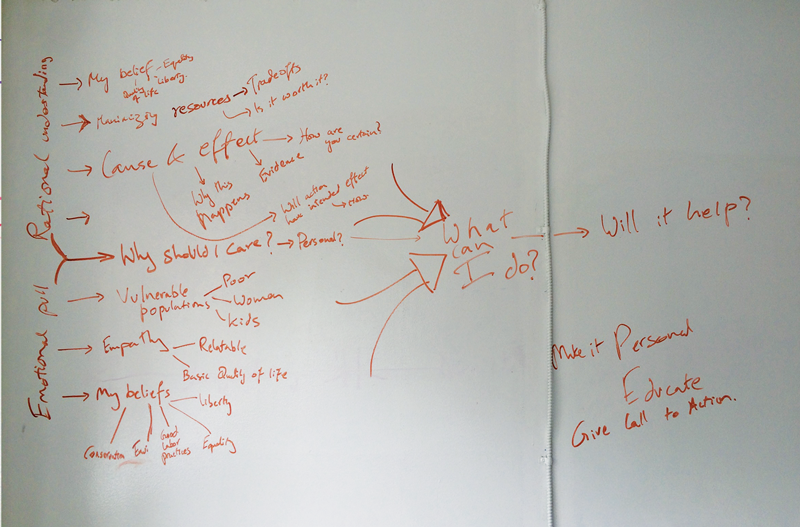 Rational understanding
Emotional pull
My belief - Equality
Liberty.
Quality
of life
Maximizing resources Tradeoffs
Is it worth it?
Cause & effect
How are
you certain?
Evidence
Why this
happens
Will action
have intended effect
How
Why should I care? Personal?
What
can
I do?
Will it help?
Vulnerable
populations
Poor
Women
Kids
Empathy
Relatable
Basic Quality of life
My beliefs
Liberty
Equality
Good
labor
practices
Conservation
Make it Personal
Educate
Give Call to Action.